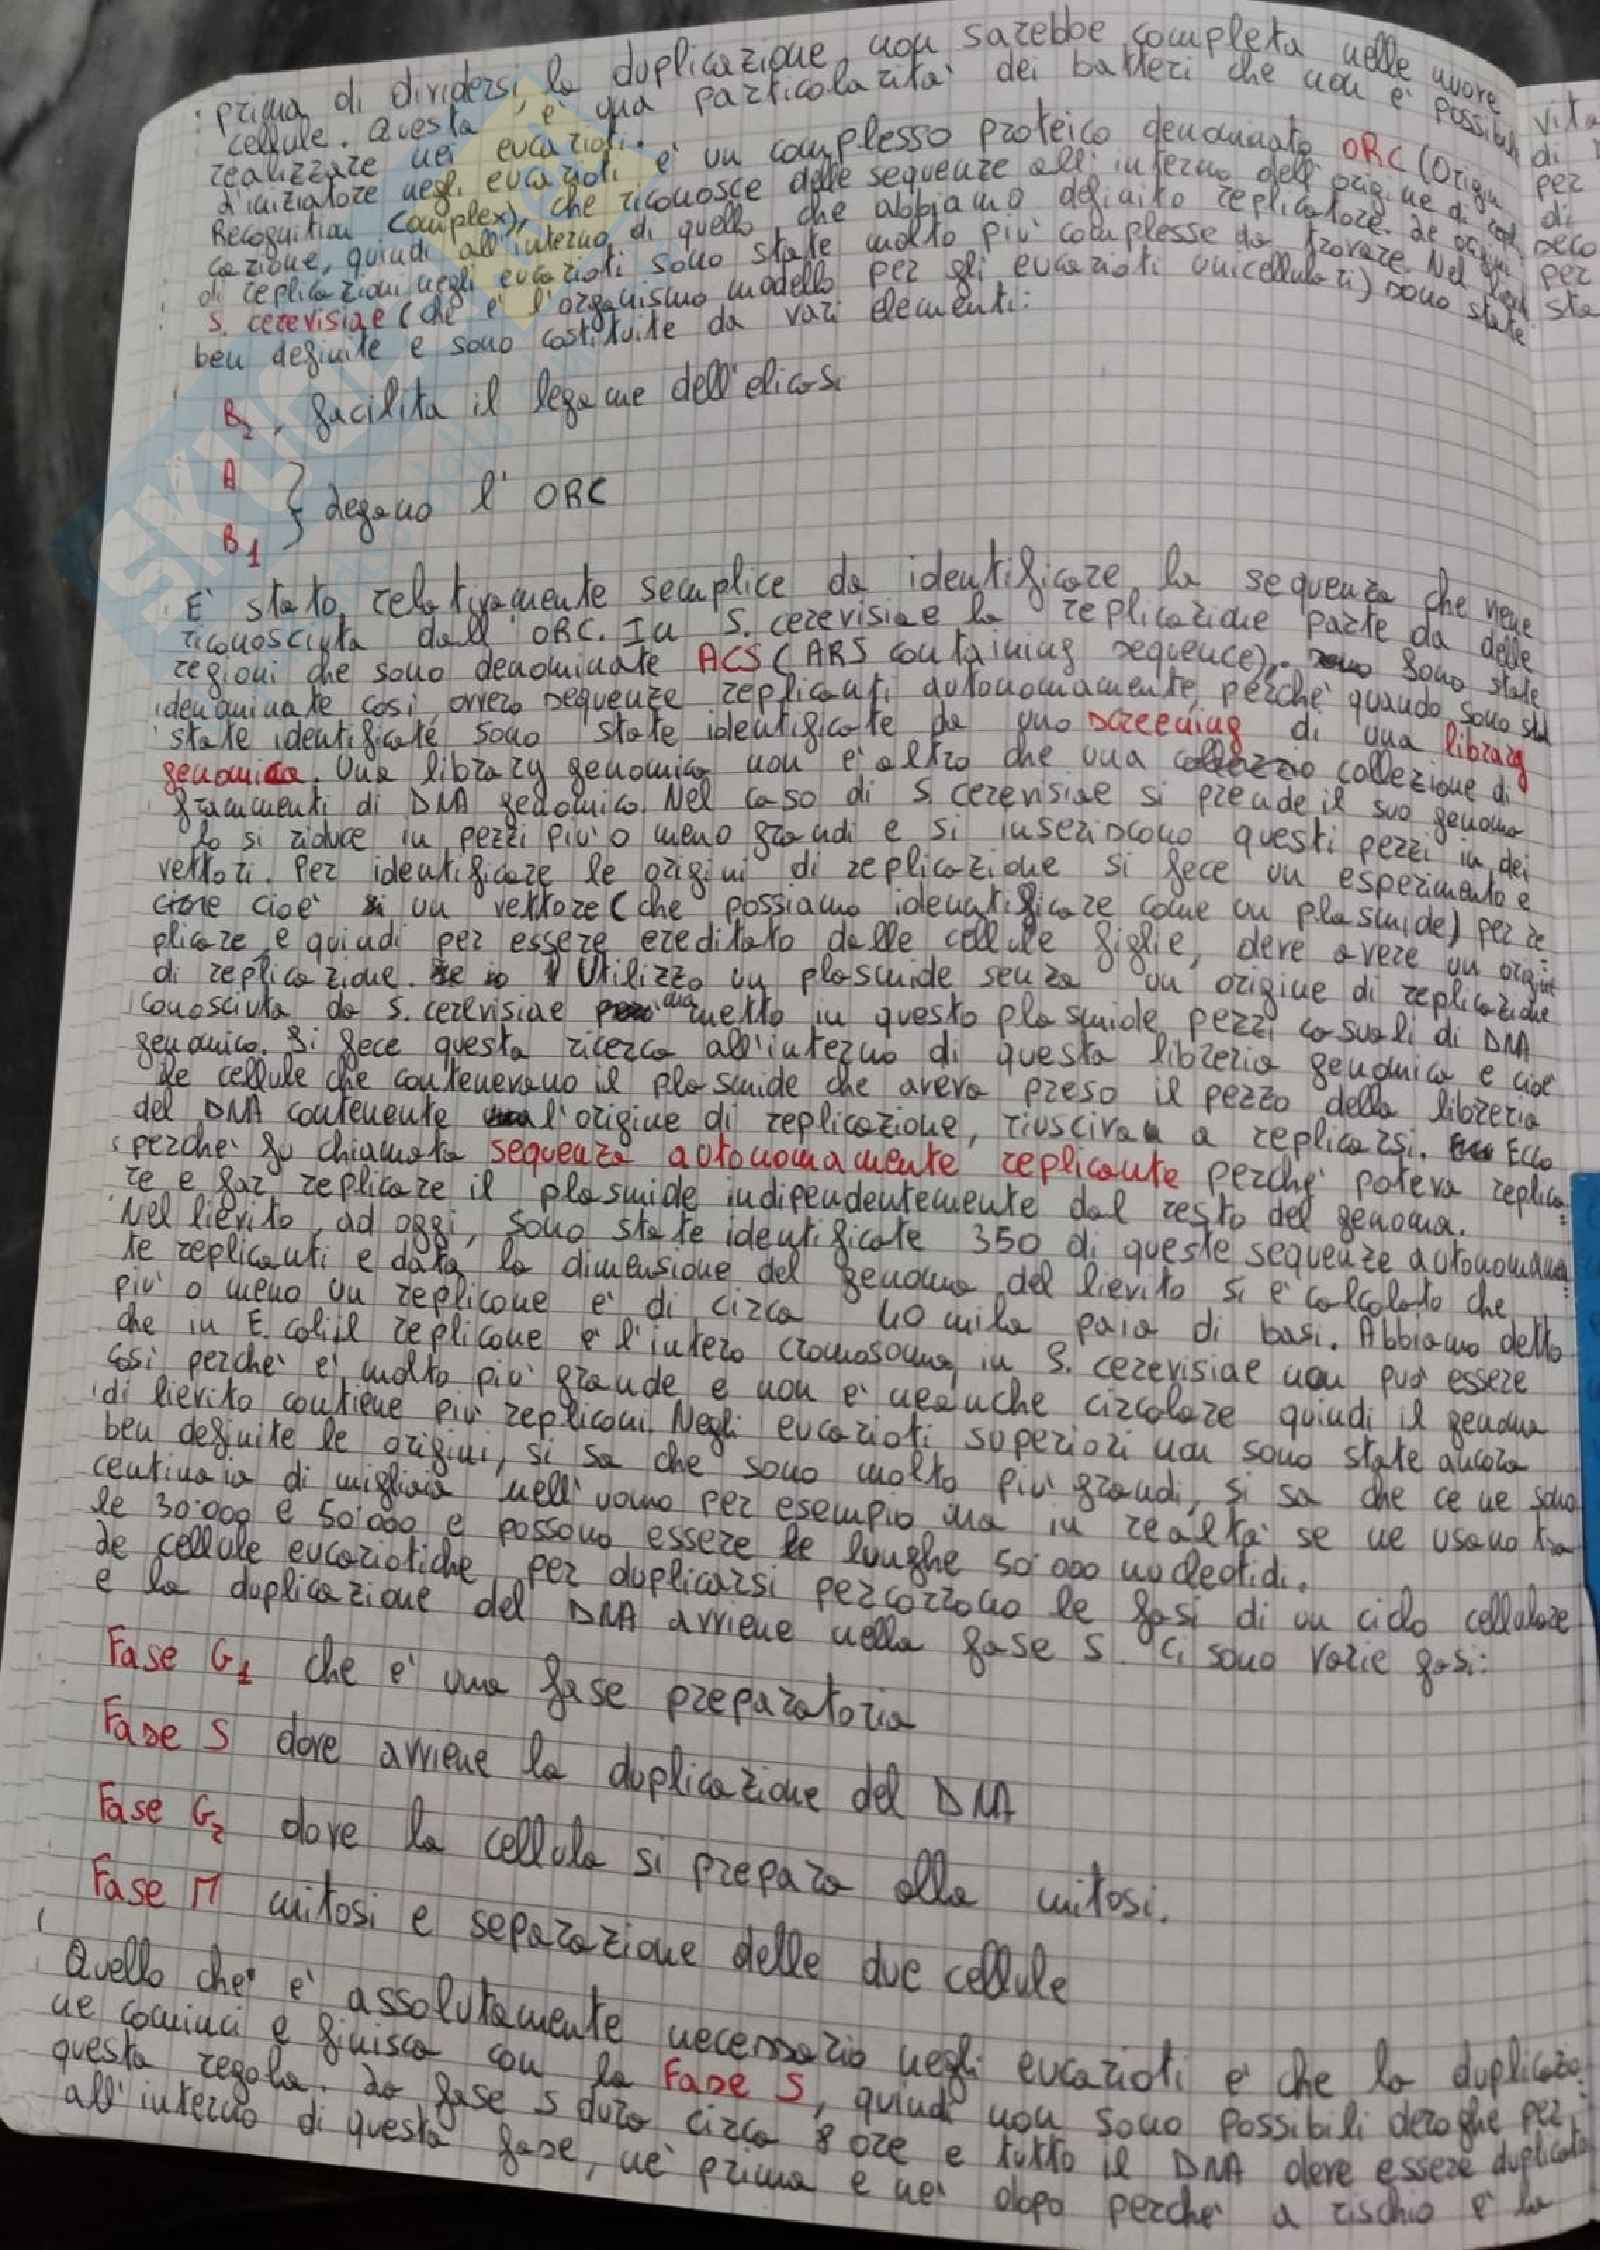 prima di dividersi, la duplicazione non sarebbe completa nelle nuove
cellule. Questa è una particolarità dei batteri che non è possibile
realizzare nei eucarioti.
L'iniziatore negli eucarioti è un complesso proteico denominato ORC (Origin
Recognition Complex), che riconosce delle sequenze all'interno dell'origine di repli
cazione, quindi all'interno di quello che abbiamo definito replicatore. Le origini
di replicazioni negli eucarioti sono state molto più complesse da trovare. Nel
S. cerevisiae (che è l'organismo modello per gli eucarioti unicellulari) sono state
ben definite e sono costituite da vari elementi:
B2, facilita il legame dell'elicasi
A
} Legano l'ORC
B1
E' stato relativamente semplice da identificare la sequenza che viene
riconosciuta dall'ORC. In S. cerevisiae la replicazione parte da delle
regioni che sono denominate ACS (ARS containing sequence). Sono state
denominate così, ovvero sequenze replicanti autonomamente, perchè quando sono
state identificate, sono state identificate da uno screening di una library
genomica. Una library genomica non è altro che una collezione di
frammenti di DNA genomico. Nel caso di S. cerevisiae si prende il suo genoma
lo si riduce in pezzi più o meno grandi e si inseriscono questi pezzi in dei
vettori. Per identificare le origini di replicazione si fece un esperimento e
cioè un vettore (che possiamo identificare come un plasmide) per re
plicare, e quindi per essere ereditato dalle cellule figlie, deve avere un origine
di replicazione. Utilizzo un plasmide senza un origine di replicazione
conosciuta da S. cerevisiae ma metto in questo plasmide pezzi casuali di DNA
genomico. Si fece questa ricerca all'interno di questa libreria genomica e cioè
le cellule che contenevano il plasmide che aveva preso il pezzo della libreria
del DNA contenente l'origine di replicazione, riuscivan a replicarsi. Ecco
perchè fu chiamata sequenza autonomamente replicante perchè poteva replica
re e far replicare il plasmide indipendentemente dal resto del genoma.
Nel lievito, ad oggi, sono state identificate 350 di queste sequenze autonomamen
te replicanti e data la dimensione del genoma del lievito si è calcolato che
più o meno un replicone è di circa 40 mila paia di basi. Abbiamo detto
che in E. coli il replicone è l'intero cromosoma, in S. cerevisiae non può essere
così perchè è molto più grande e non è neanche circolare quindi il genoma
di lievito contiene più repliconi. Negli eucarioti superiori non sono state ancora
ben definite le origini, si sa che sono molto più grandi, si sa che ce ne sono
centinaia di migliaia nell'uomo per esempio ma in realtà se ne usano tra
le 30'000 e 50'000 e possono essere lunghe 50'000 nucleotidi.
Le cellule eucariotiche, per duplicarsi percorrono le fasi di un ciclo cellulare
e la duplicazione del DNA avviene nella fase S. Ci sono varie fasi:
Fase G1 che è una fase preparatoria
Fase S dove avviene la duplicazione del DNA
Fase G2 dove la cellula si prepara alla mitosi.
Fase M mitosi e separazione delle due cellule
Quello che è assolutamente necessario negli eucarioti è che la duplicazio
ne cominci e finisca con la Fase S, quindi non sono possibili deroghe per
questa regola. La fase S dura circa 8 ore e tutto il DNA deve essere duplicato
all'interno di questa fase, nè prima e nè dopo perchè a rischio è la
vita
di
per
di
per
sta
SKUOLA